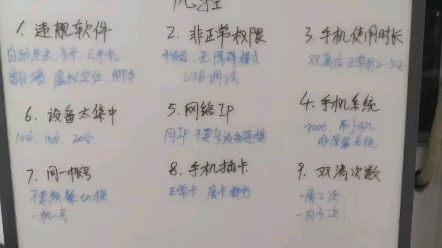 风控
1. 违规软件
自动点击、多开、云手机
翻墙 虚拟定位 脚本
2. 非正常权限
开发者、无障碍模式
USB调试
3. 手机使用时长
双离后正常刷2-5天
6. 设备太集中
10台、15台、20台
5. 网络IP
同IP不要多设备连接
4. 手机系统
非原装系统
7. 同一帐号
不要频繁切换
一机一号
8. 手机插卡
正常卡
9. 双离次数
一周2次
一月5次